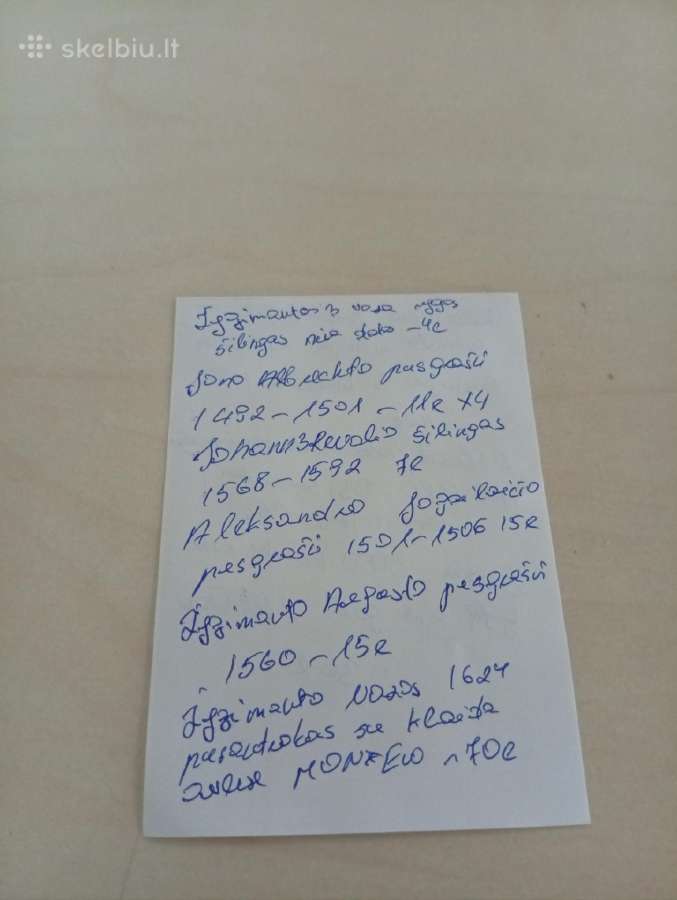 skelbiu.lt
Žygimantos 3 vaza rygos
šilingas nėra dato - 4e
Jono Albrechto pusgrašis
1492 - 1501 - 11e x4
Johann 3 Revalio šilingas
1568 - 1592 7e
Aleksandro Jogailaičio
pusgrašis 1501 - 1506 15e
Žygimanto Augusto pusgrašis
1560 - 15e
Žygimanto Vazos 1624
su klaida
MONXEW 70e